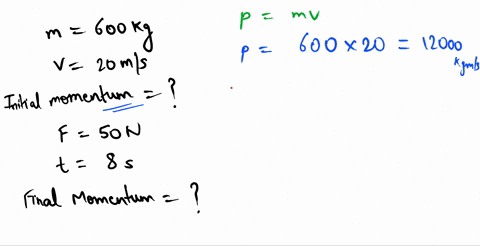 m = 600 kg
V = 20 m/s
Initial momentum = ?
F = 50 N
t = 8 s
Final Momentum = ?
p = mv
p = 600 × 20 = 12000 kgm/s